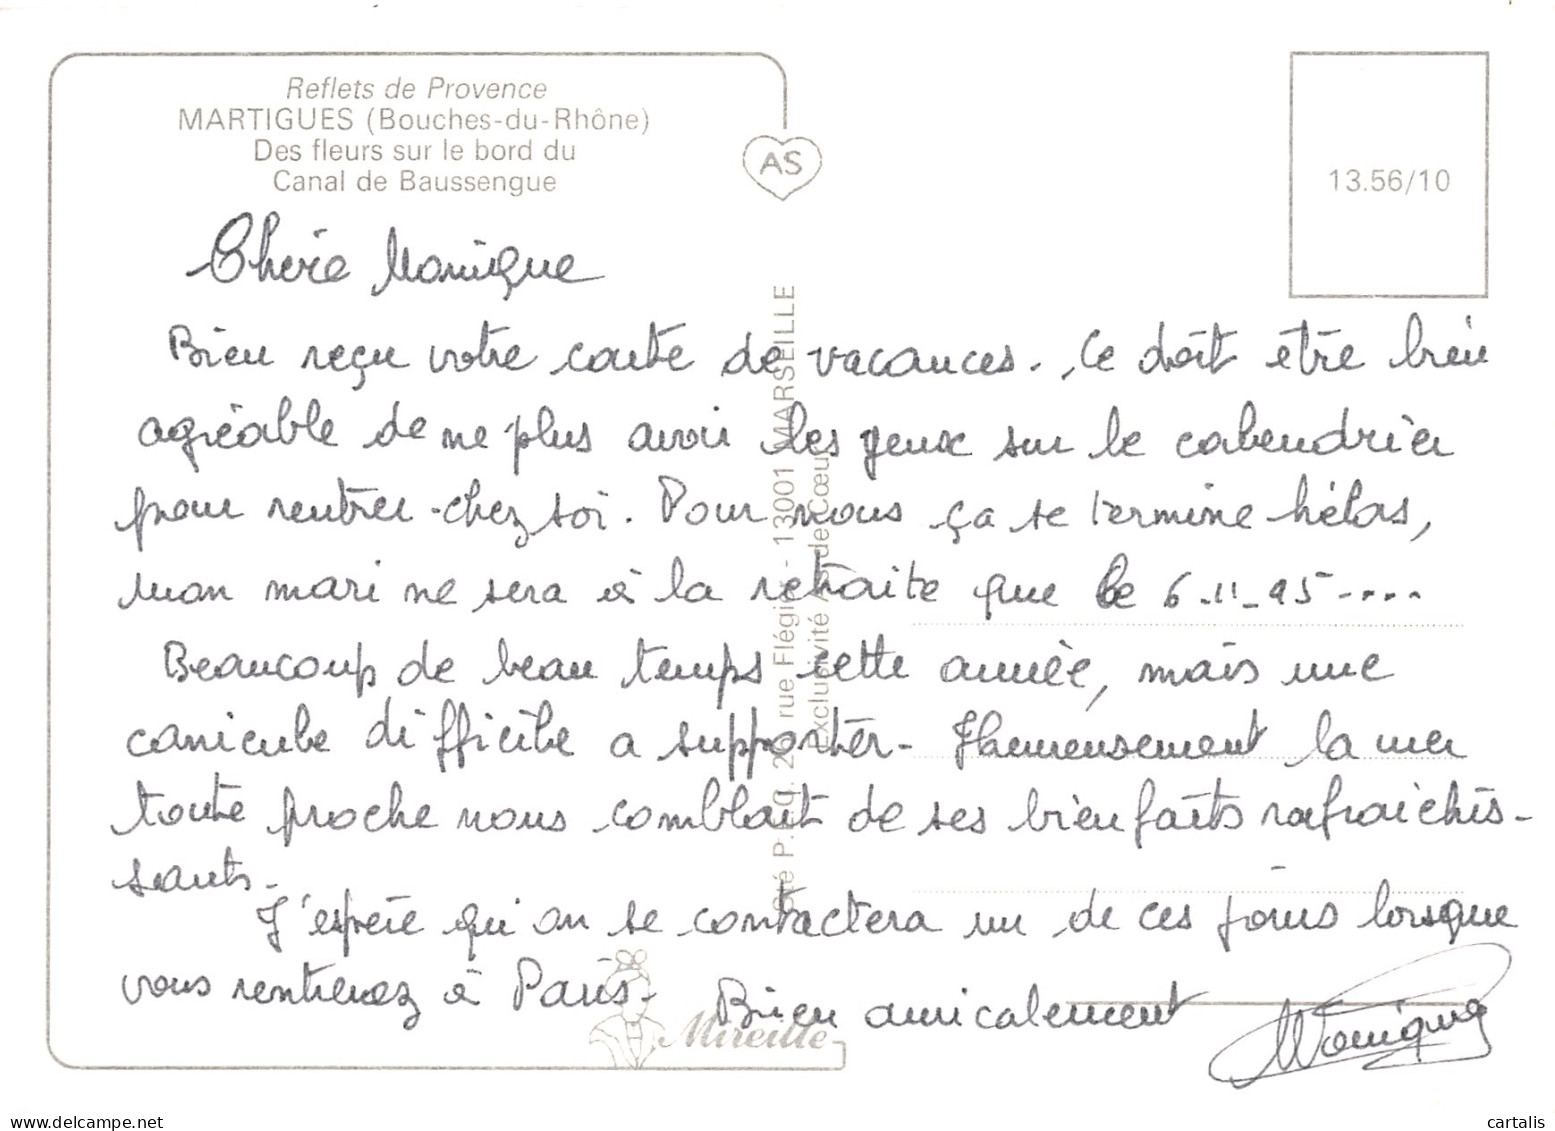 Reflets de Provence
MARTIGUES (Bouches-du-Rhône)
Des fleurs sur le bord du
Canal de Baussengue
AS
13.56/10
Chère Monique
Bien reçu votre carte de vacances. Ce doit être bien
agréable de ne plus avoir les yeux sur le calendrier
pour rentrer chez soi. Pour nous ça se termine hélas,
mon mari ne sera à la retraite que le 6.11.95....
Beaucoup de beau temps cette année, mais une
canicule difficile a supporter - Heureusement la mer
toute proche nous comblait de ses bienfaits rafraichis-
sants.
J'espère qu'on se contactera un de ces jours lorsque
vous rentrerez à Paris.
Bien amicalement
Monique
Mireille
rue Flégier - 13001 MARSEILLE
Exclusivité de Cœur
delcampe.net
cartalis